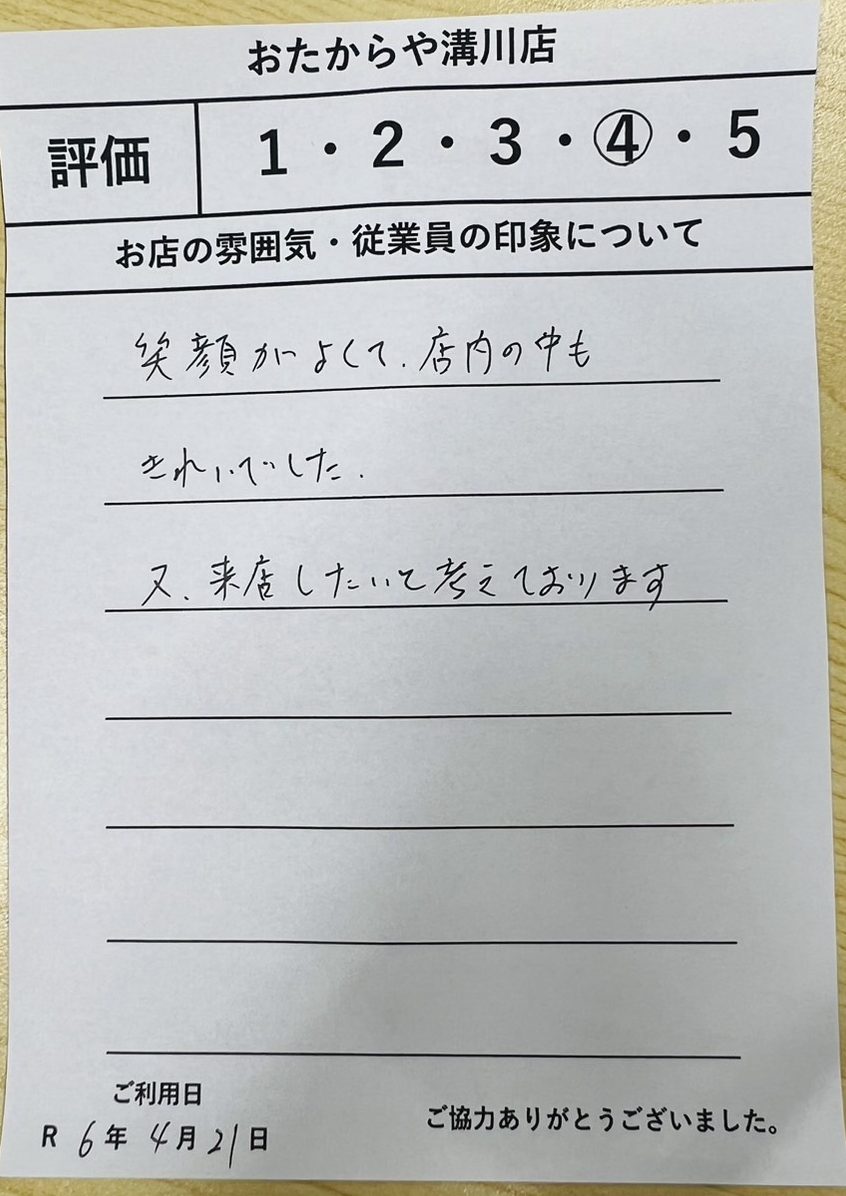 おたからや溝川店
評価 1・2・3・④・5
お店の雰囲気・従業員の印象について
笑顔がよくて、店内の中も
きれいでした.
又、来店したいと考えております
ご利用日
R 6年 4月21日
ご協力ありがとうございました。